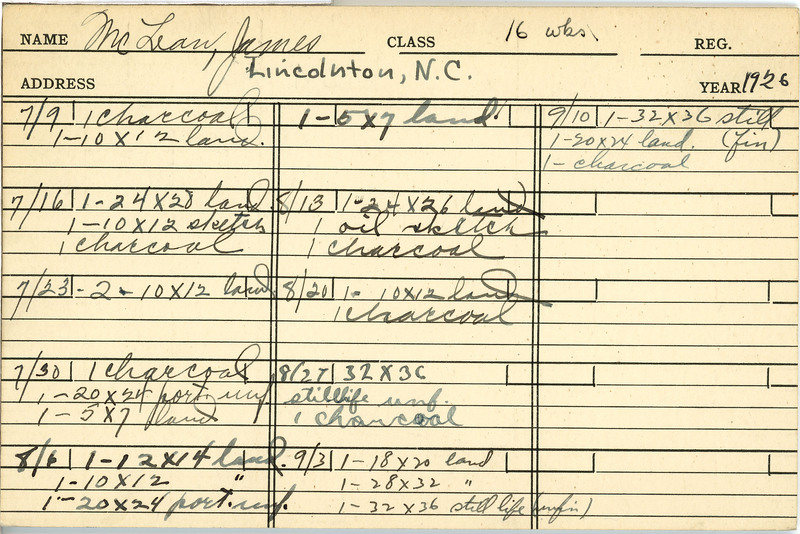 NAME McLean, James CLASS 16 wks REG.
ADDRESS Lincolnton, N.C. YEAR 1926
7/9 1 charcoal
1-10X12 land.
7/16 1-24X20 land
1-10X12 sketch
1 charcoal
7/23 -2-10X12 land
7/30 1 charcoal
1-20X24 port. unf
1-5X7 land
8/6 1-12X14 land.
1-10X12 "
1-20X24 port. unf.
1-5X7 land
8/13 1-24X26 land
1 oil sketch
1 charcoal
8/20 1-10X12 land
1 charcoal
8/27 32X36
stilllife unf.
1 charcoal
9/3 1-18X20 land
1-28X32 "
1-32X36 still life (unfin)
9/10 1-32X36 still
1-20X24 land. (fin)
1-charcoal